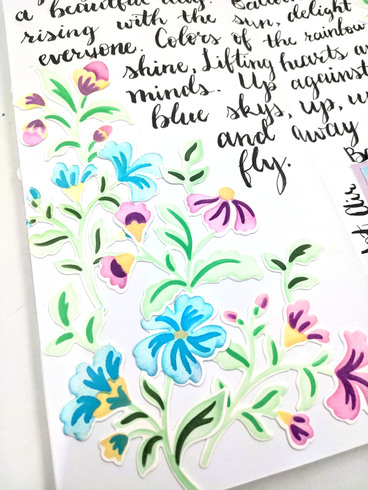 a beautiful day. Balloons
rising with the sun, delight
everyone. Colors of the rainbow
shine, Lifting hearts and
minds. Up against
blue skys, up, up
and away
fly.